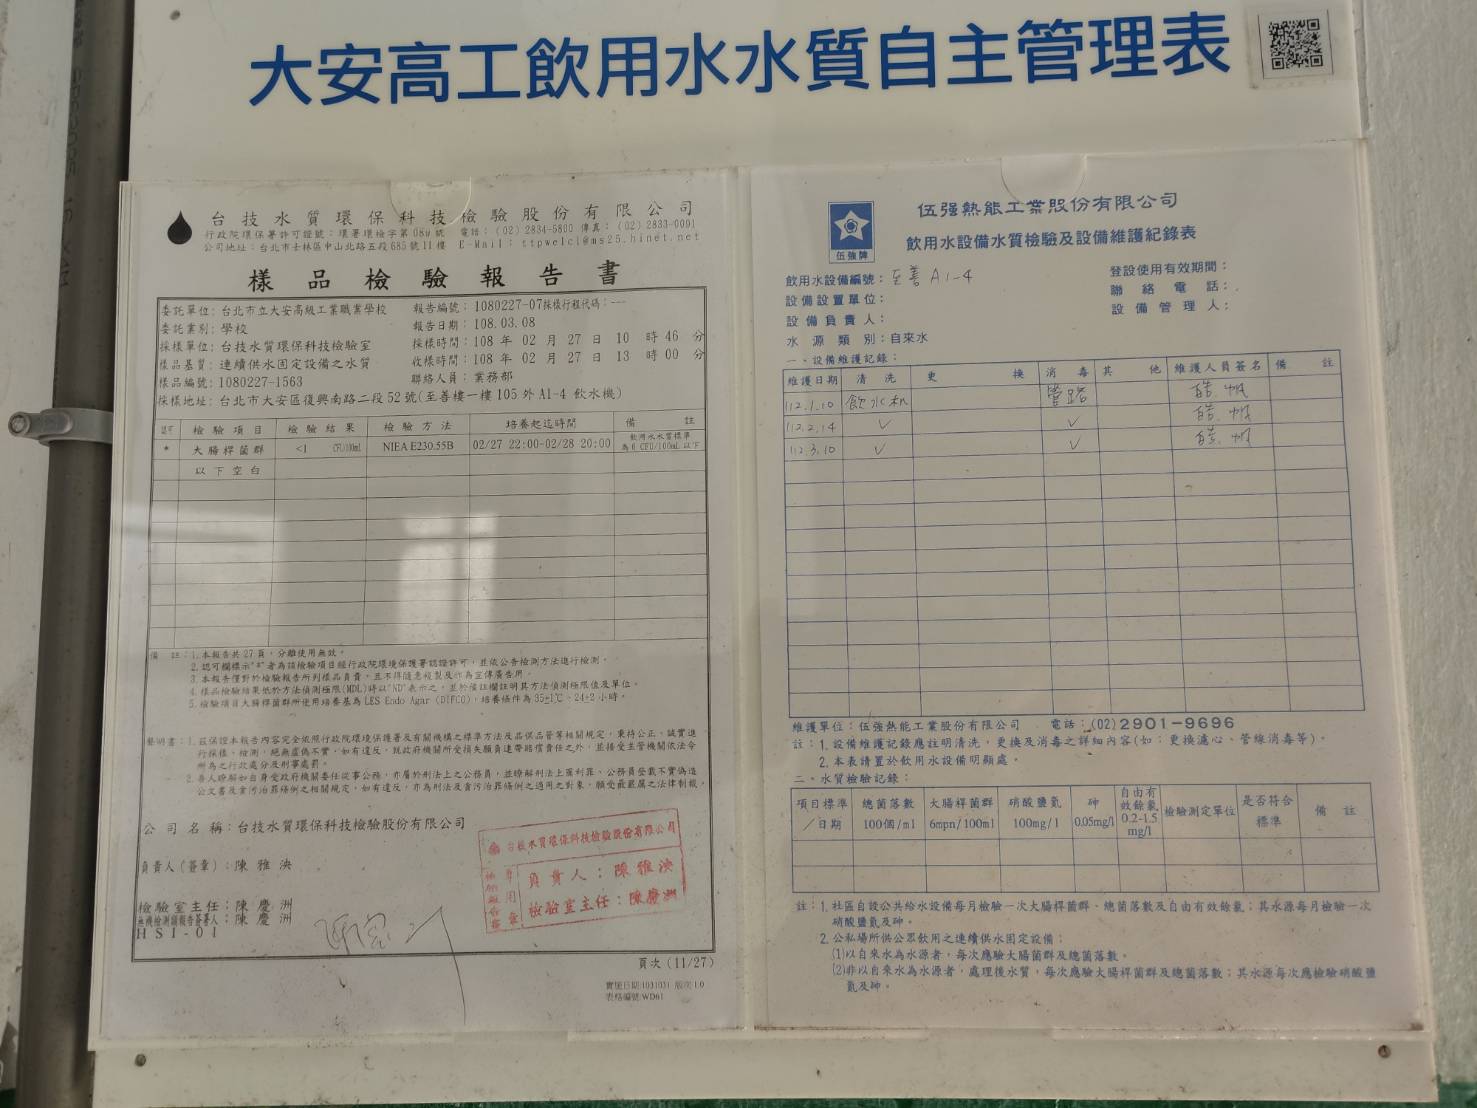 大安高工飲用水水質自主管理表
台技水質環保科技檢驗股份有限公司
行政院環保署許可證號：環署環檢字第089號 電話：(02) 2834-5800 傳真：(02) 2833-0091
公司地址：台北市士林區中山北路五段685號11樓 E-Mail：ttpwelcl@ms25.hinet.net
樣品檢驗報告書
委託單位：台北市立大安高級工業職業學校 報告編號：1080227-07採樣行程代碼：---
委託業別：學校 報告日期：108.03.08
採樣單位：台技水質環保科技檢驗室 採樣時間：108 年 02 月 27 日 10 時 46 分
樣品基質：連續供水固定設備之水質 收樣時間：108 年 02 月 27 日 13 時 00 分
樣品編號：1080227-1563 聯絡人員：業務部
採樣地址：台北市大安區復興南路二段52號(至善樓一樓105外A1-4飲水機)
認可 檢驗項目 檢驗結果 檢驗方法 培養起迄時間 備註
* 大腸桿菌群 <1 CFU/100ml NIEA E230.55B 02/27 22:00-02/28 20:00 飲用水水質標準為6 CFU/100mL以下
以下空白
備 註：1.本報告共27頁，分離使用無效。
2.認可欄標示"*"者為該檢驗項目經行政院環境保護署認證許可，並依公告檢測方法進行檢測。
3.本報告僅對於檢驗報告所列樣品負責，且不得隨意複製及作為宣傳廣告用。
4.樣品檢驗結果低於方法偵測極限(MDL)時以"ND"表示之，並於備註欄註明其方法偵測極限值及單位。
5.檢驗項目大腸桿菌群所使用培養基為LES Endo Agar (DIFCO)，培養條件為35±1℃、24±2小時。
聲明書：1.茲保證本報告內容完全依照行政院環境保護署及有關機構之標準方法及品保品管等相關規定，秉持公正、誠實進
行採樣、檢測，絕無虛偽不實，如有違反，就政府機關所受損失願負連帶賠償責任之外，並接受主管機關依法令
所為之行政處分及刑事處罰。
2.吾人瞭解如自身受政府機關委任從事公務，亦屬於刑法上之公務員，並瞭解刑法上圖利罪、公務員登載不實偽造
公文書及貪污治罪條例之相關規定，如有違反，亦為刑法及貪污治罪條例之適用之對象，願受最嚴厲之法律制裁。
公司名稱：台技水質環保科技檢驗股份有限公司
負責人(簽章)：陳雅泱
檢驗室主任：陳慶洲
無機檢測類報告簽署人：陳慶洲
HSI-01
台技水質環保科技檢驗股份有限公司
檢驗報告專用章
負責人：陳雅泱
檢驗室主任：陳慶洲
頁次(11/27)
實施日期:1031031 版次:1.0
表格編號:WD61
伍強牌
伍强熱能工業股份有限公司
飲用水設備水質檢驗及設備維護紀錄表
飲用水設備編號：至善 A1-4 登設使用有效期間：
設備設置單位： 聯絡電話：
設備負責人： 設備管理人：
水源類別：自來水
一、設備維護記錄：
維護日期 清洗 更換 消毒 其他 維護人員簽名 備註
112.1.10 飲水机 管路
112.2.14 ✓ ✓
112.3.10 ✓ ✓
維護單位：伍強熱能工業股份有限公司 電話：(02)2901-9696
註：1.設備維護記錄應註明清洗，更換及消毒之詳細內容(如：更換濾心、管線消毒等)。
2.本表請置於飲用水設備明顯處。
二、水質檢驗記錄：
項目標準／日期 總菌落數100個/ml 大腸桿菌群6mpn/100ml 硝酸鹽氮100mg/l 砷0.05mg/l 自由有效餘氯0.2-1.5mg/l 檢驗測定單位 是否符合標準 備註
註：1.社區自設公共給水設備每月檢驗一次大腸桿菌群、總菌落數及自由有效餘氯；其水源每月檢驗一次
硝酸鹽氮及砷。
2.公私場所供公眾飲用之連續供水固定設備：
(1)以自來水為水源者，每次應驗大腸菌群及總菌落數。
(2)非以自來水為水源者，處理後水質，每次應驗大腸桿菌群及總菌落數；其水源每次應檢驗硝酸鹽
氮及砷。